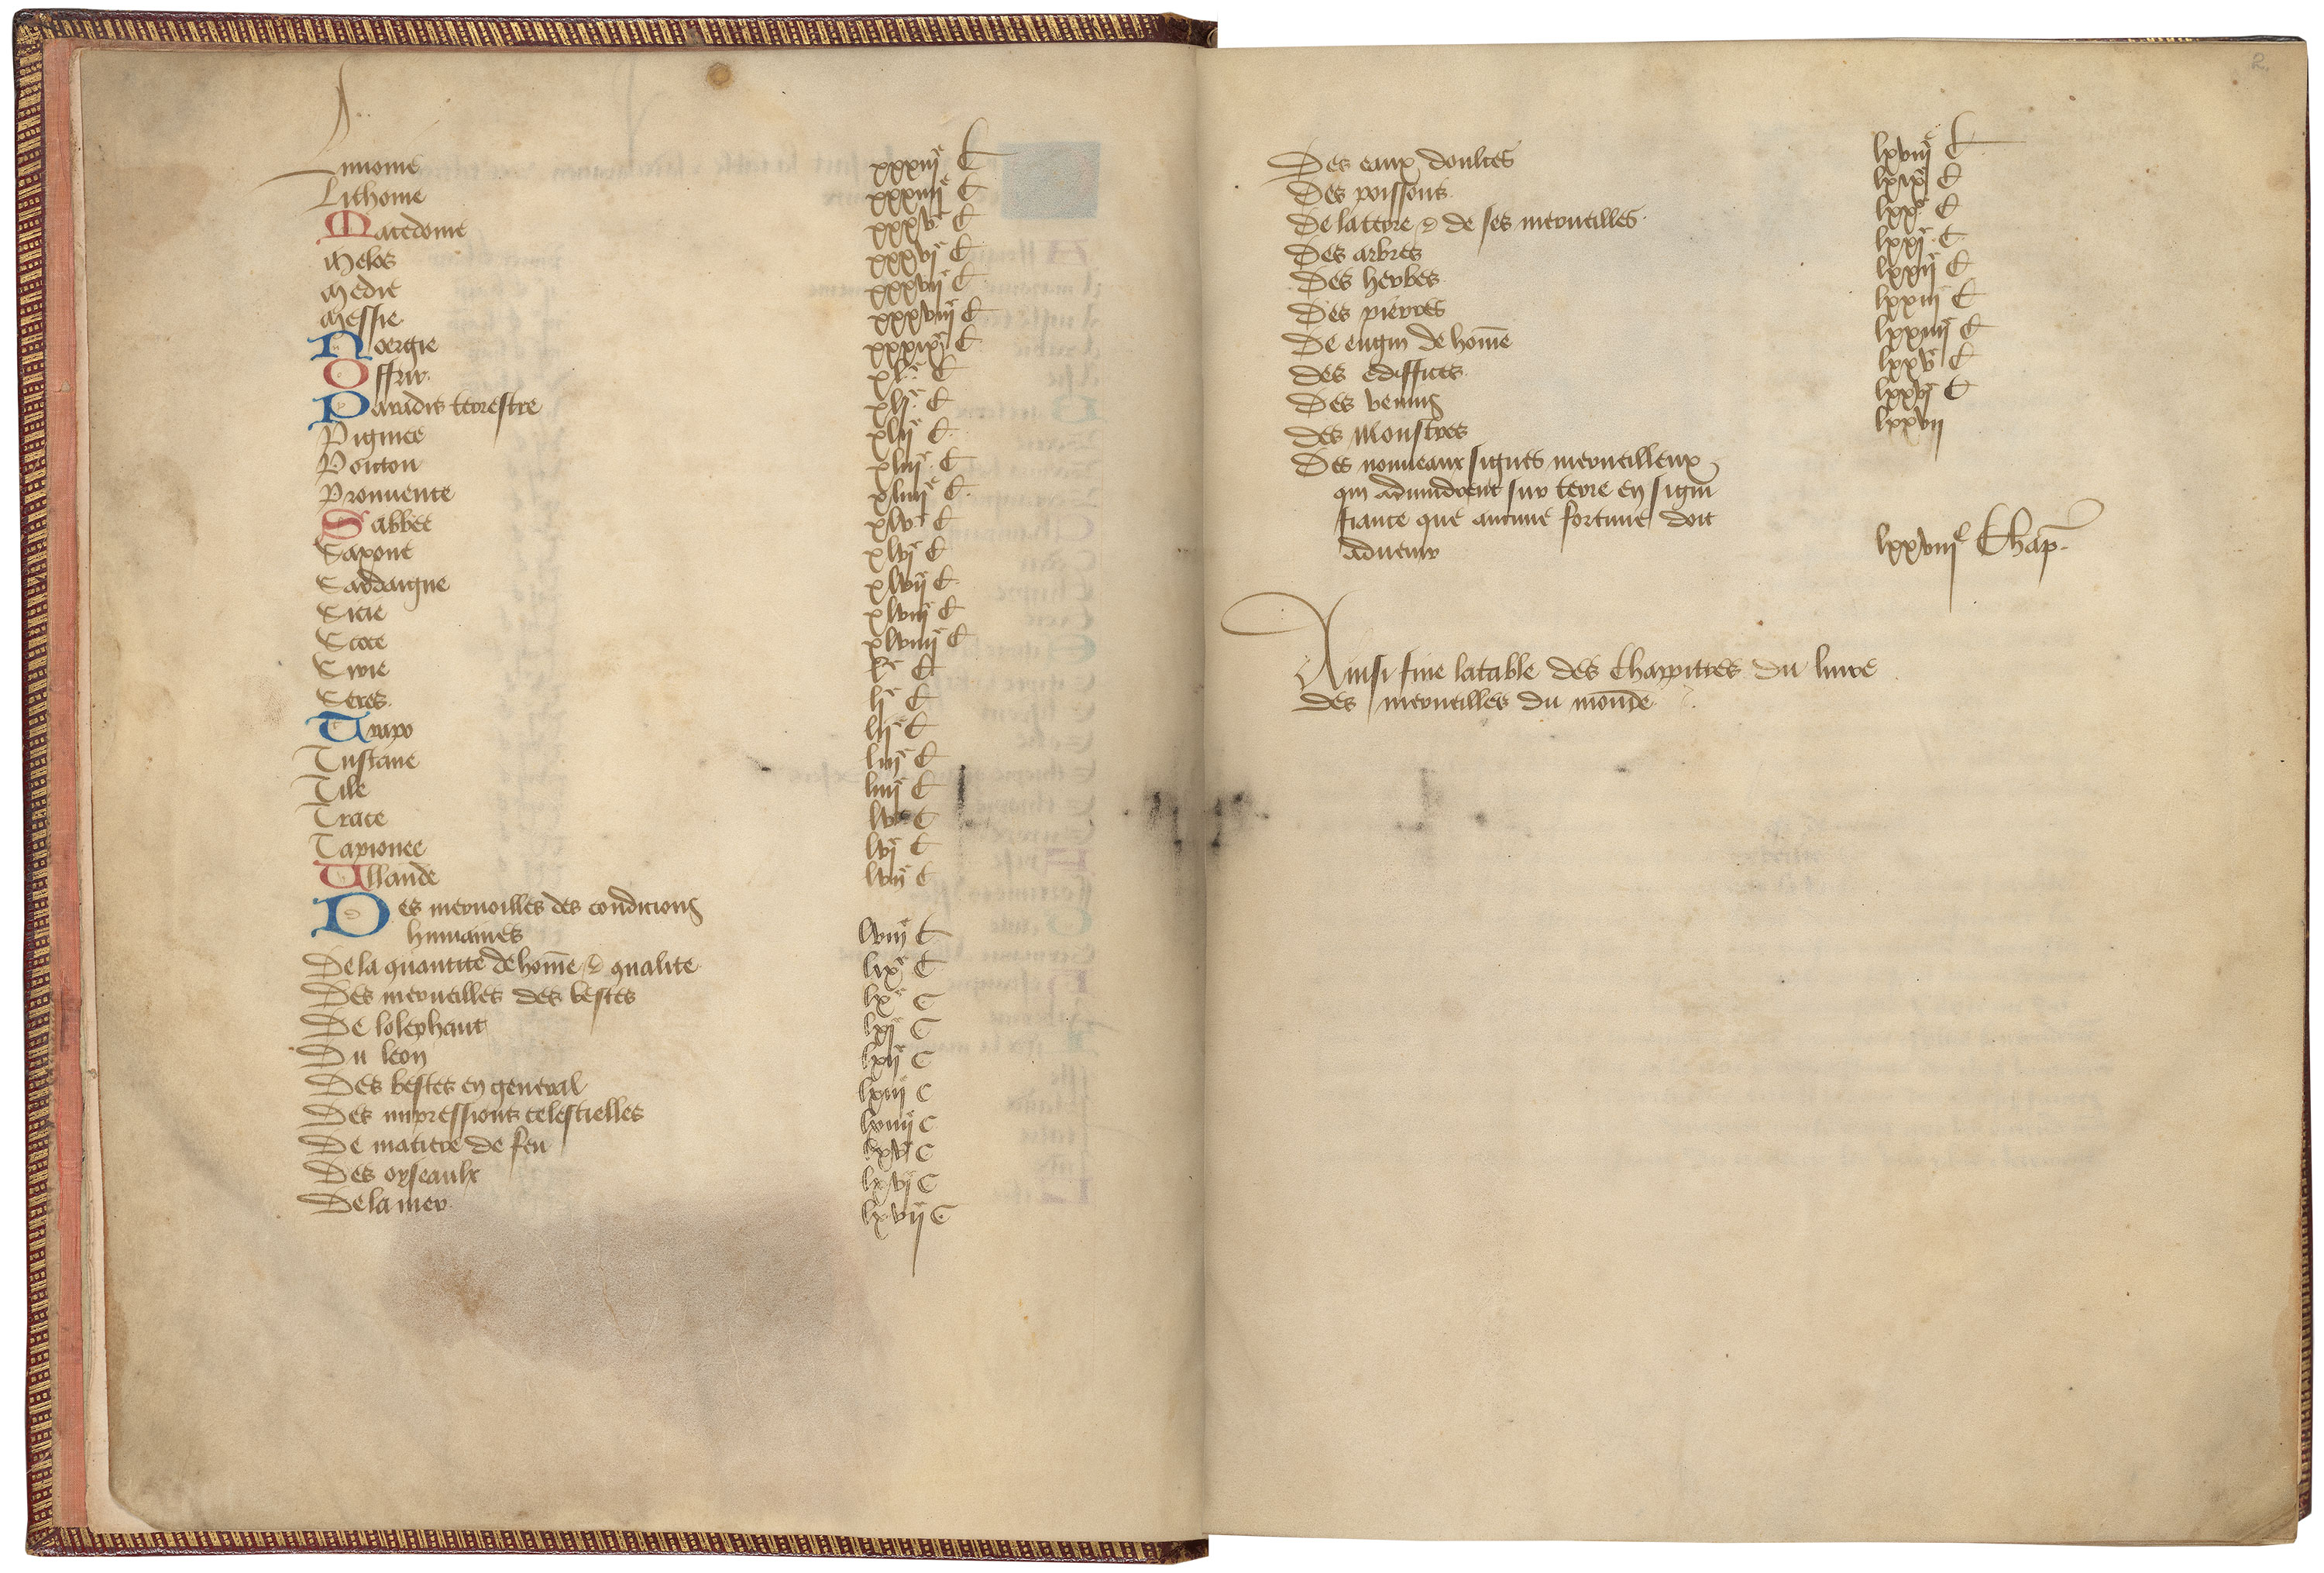 Linionie xxxiiie C
Lithonie xxxiiiie C
Macedonie xxxve C
Melos xxxvie C
Medie xxxviie C
Messie xxxviiie C
Noergie xxxixe C
Offrir xle C
Paradis terrestre xlie C
Pigmee xliie C
Poitou xliiie C
Prouuence xliiiie C
Sabbee xlve C
Saxone xlvie C
Sardaigne xlviie C
Sicie xlviiie C
Scoce xlviiiie C
Sirie le C
Seres lie C
Trapo liie C
Tuscane liiie C
Tile liiiie C
Trace lve C
Tapronee lvie C
Ullande lviie C
Des meruoilles des condicions
humaines lviiie C
De la quantite de home & qualite lixe C
Des merueilles des bestes lxe C
De lolephant lxie C
Du leon lxiie C
Des bestes en general lxiiie C
Des impressions celestielles lxiiiie C
De matiere de feu lxve C
Des oyseaulx lxvie C
De la mer lxviie C
2
Des eaux doulces lxviiie C
Des poissons lxixe C
De la terre & de ses merueilles lxxe C
Des arbres lxxie C
Des herbes lxxiie C
Des pierres lxxiiie C
De engin de home lxxiiiie C
des ediffices lxxve C
Des venins lxxvie C
des Monstres lxxvii
Des nouueaux signes merueilleux
qui aduindrent sur terre en signi
fiance que aucune fortune doit
aduenir lxxviiie Chap.
Ainsi fine la table des Chappitres du liure
des merueilles du monde